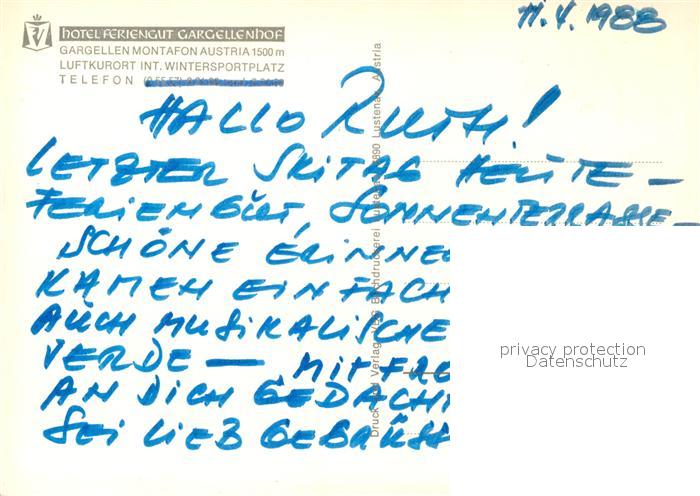 11.4.1988
HOTEL FERIENGUT GARGELLENHOF
GARGELLEN MONTAFON AUSTRIA 1500 m
LUFTKURORT INT. WINTERSPORTPLATZ
TELEFON
HALLO RUTH!
LETZTER SKITAG HEUTE –
FERIENGUT, SONNENTERRASSE –
SCHÖNE ERINNE
KAMEN EINFACH
AUCH MUSIKALISCHE
VERDE — MIT
AN DICH GEDACH
SEI LIEB GEGRÜSS
Druck und Verlag: Buchdruckerei Lustenau, 6890 Lustenau, Austria
privacy protection
Datenschutz